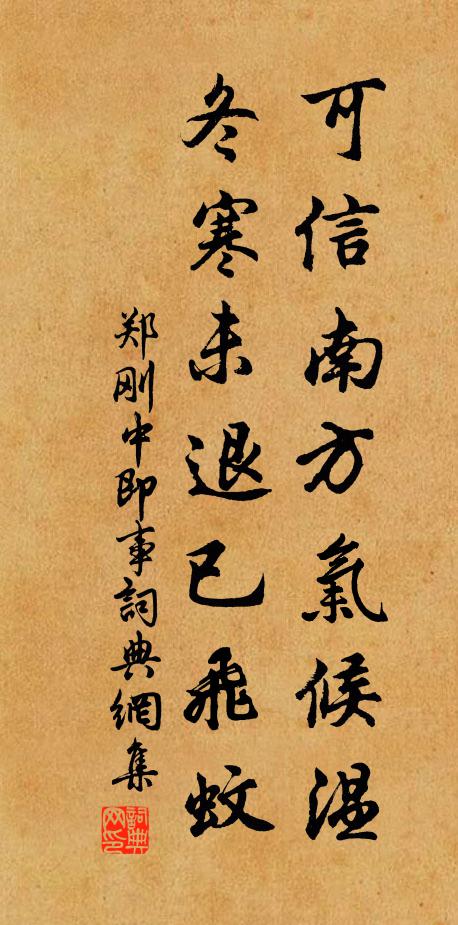 可信南方氣候温
冬寒未退已飛蚊
郑刚中即事詞典網集
詞典网印